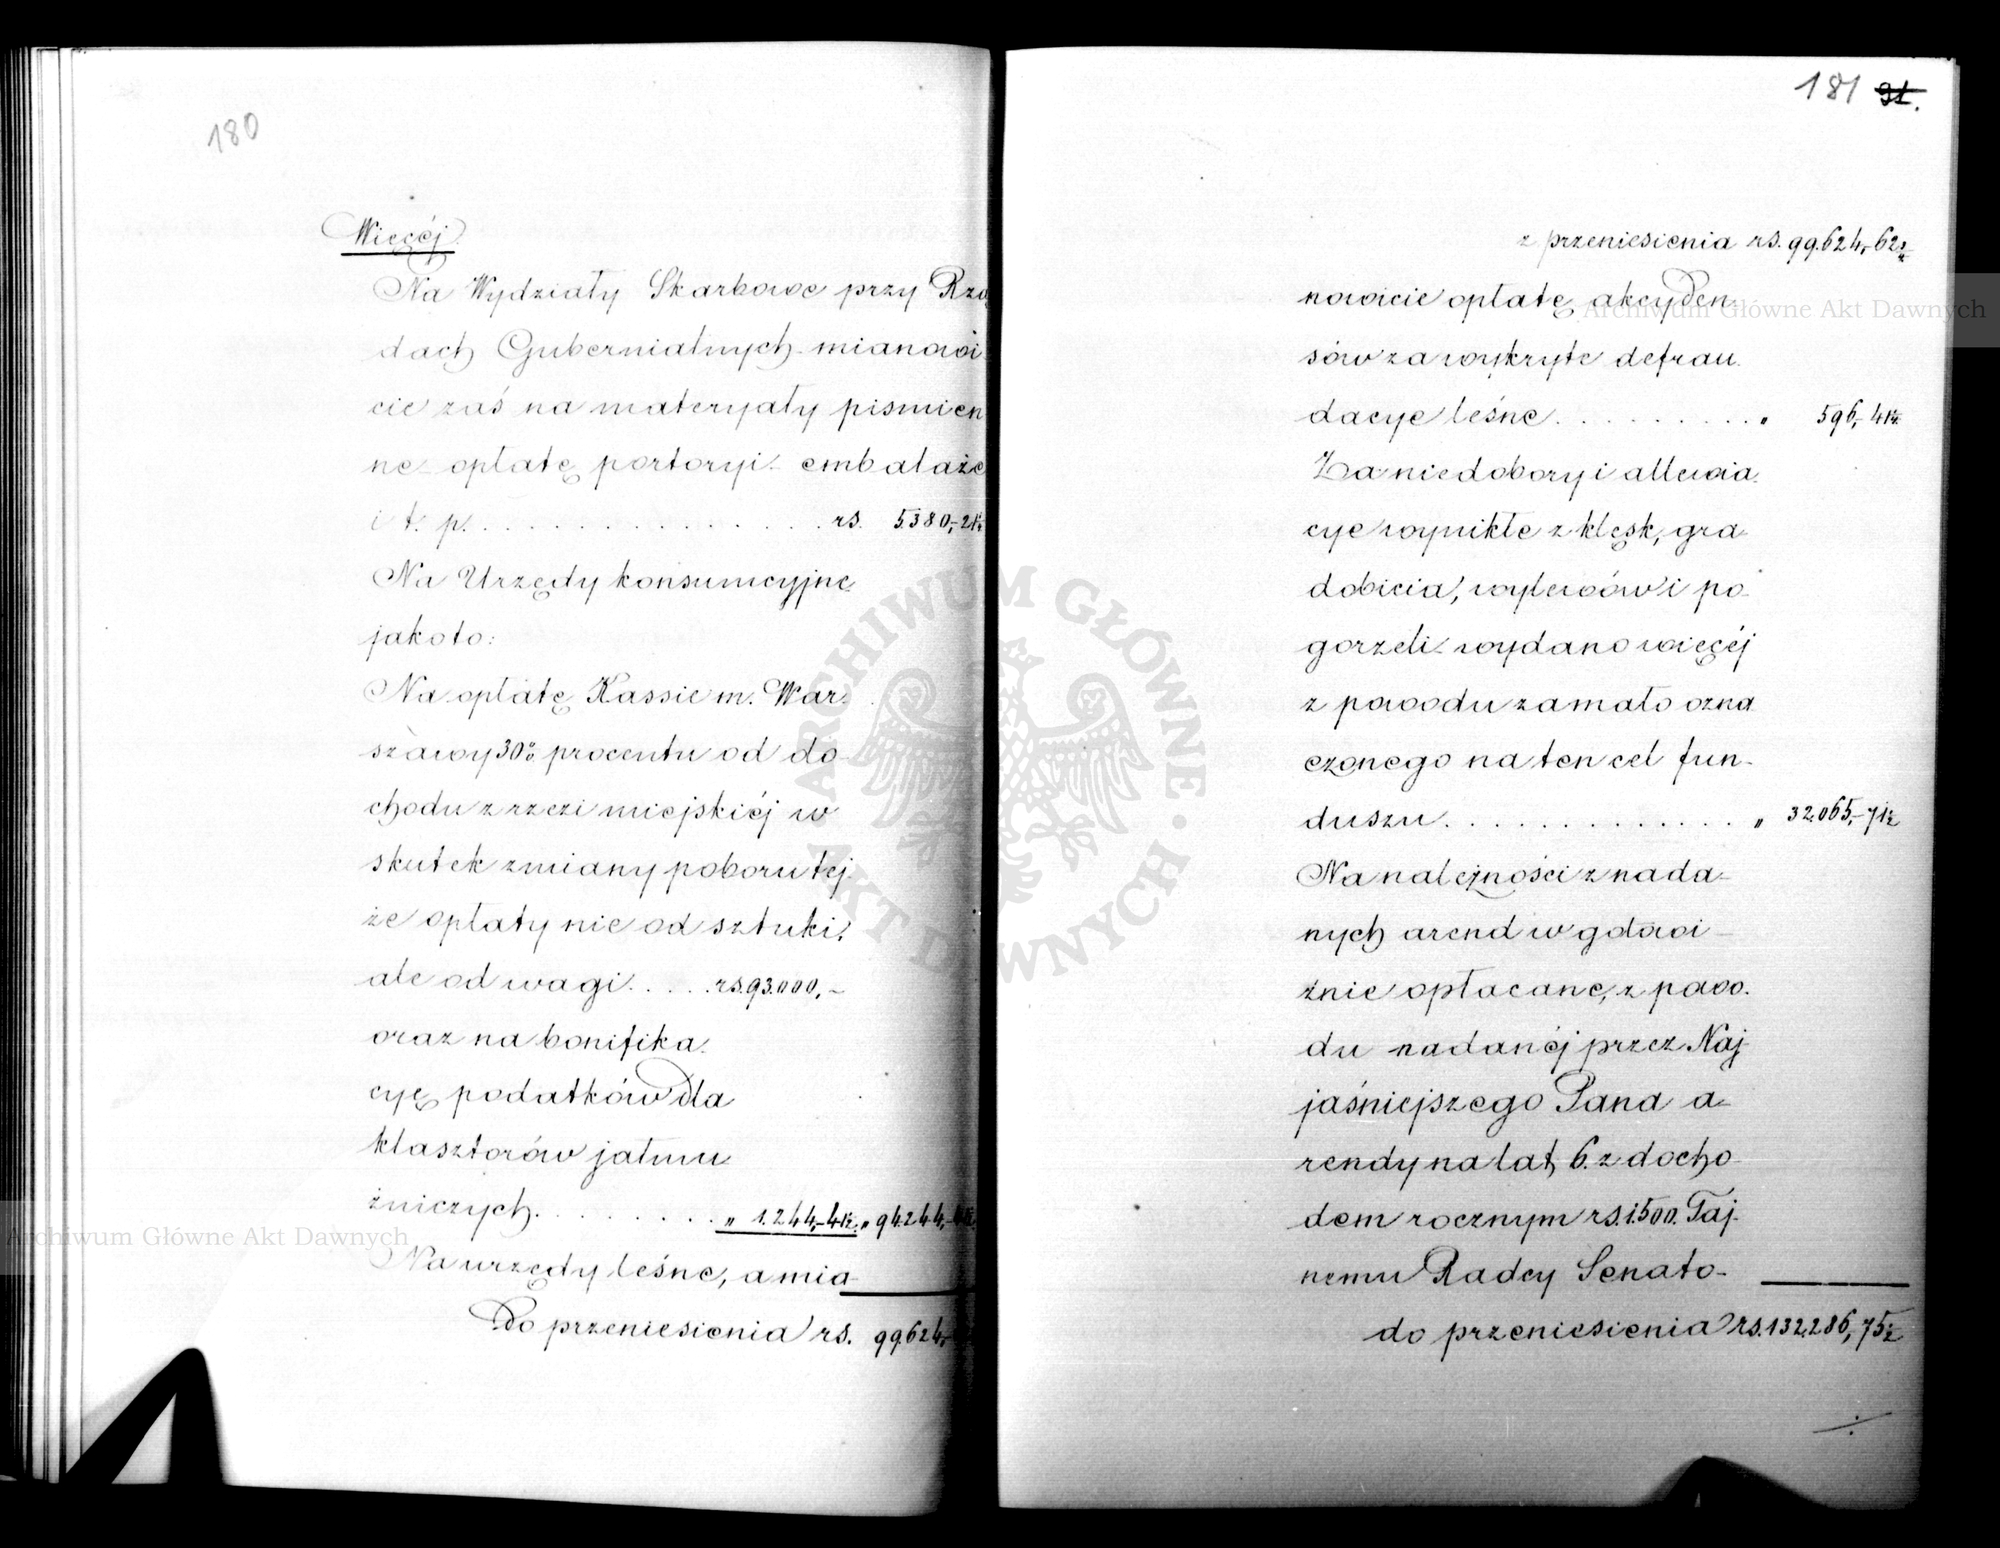 180
Więcéj
Na Wydziały Skarbowe przy Rzą
dach Gubernialnych mianowi
cie zaś na materyały pismien
ne opłatę portoryi embalaże
i t. p. . . . . . . . . . . . . . . rs. 5380,-21½
Na Urzędy konsumcyjne
jakoto:
Na opłatę Kassie m. War-
szawy 30% procentu od do-
chodu z rzezi miejskiéj w
skutek zmiany poboru tej
że opłaty nie od sztuki,
ale od wagi . . . . . rs. 93.000,-
oraz na bonifika-
cyę podatków dla
klasztorów jałmu
żniczych. . . . . . . . . „ 1.244,-41½ „ 94.244,-41½
Na urzędy leśne, a mia-
Do przeniesienia rs. 99.624,-
181 91.
z przeniesienia rs. 99.624,-62
nowicie opłatę akcyden-
sów za wykryte defrau-
dacye leśne . . . . . . . . . . „ 596,-41½
Za niedobory i allewia-
cye wynikłe z klęsk, gra-
dobicia, wylewów i po-
gorzeli wydano więcéj
z powodu zamało ozna
czonego na ten cel fun-
duszu . . . . . . . . . . . . . . „ 32.065,-71½
Na należności z nada-
nych arend w gotowi-
źnie opłacane, z powo-
du nadanéj przez Naj-
jaśniejszego Pana a-
rendy na lat 6. z docho-
dem rocznym rs. 1.500. Taj-
nemu Radcy Senato-
do przeniesienia rs. 132,286,-75½
Archiwum Główne Akt Dawnych
Archiwum Główne Akt Dawnych
ARCHIWUM GŁÓWNE • AKT DAWNYCH •